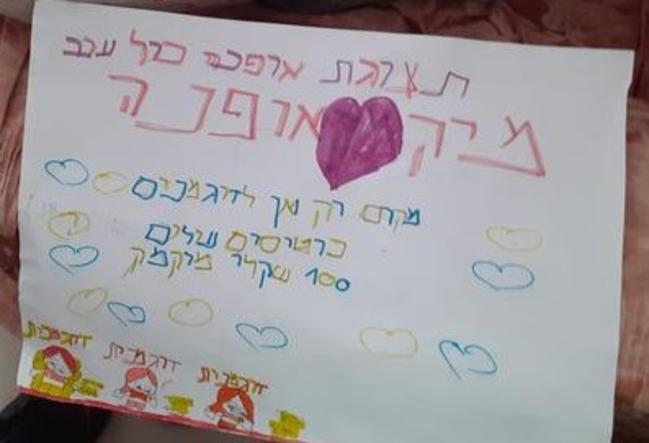 תצוגת אופנה
מיקה אופנה
מקום רק אך לדוגמנים
כרטיסים עולים
100 שקלי מיקמק
דוגמנית דוגמנית דוגמנית